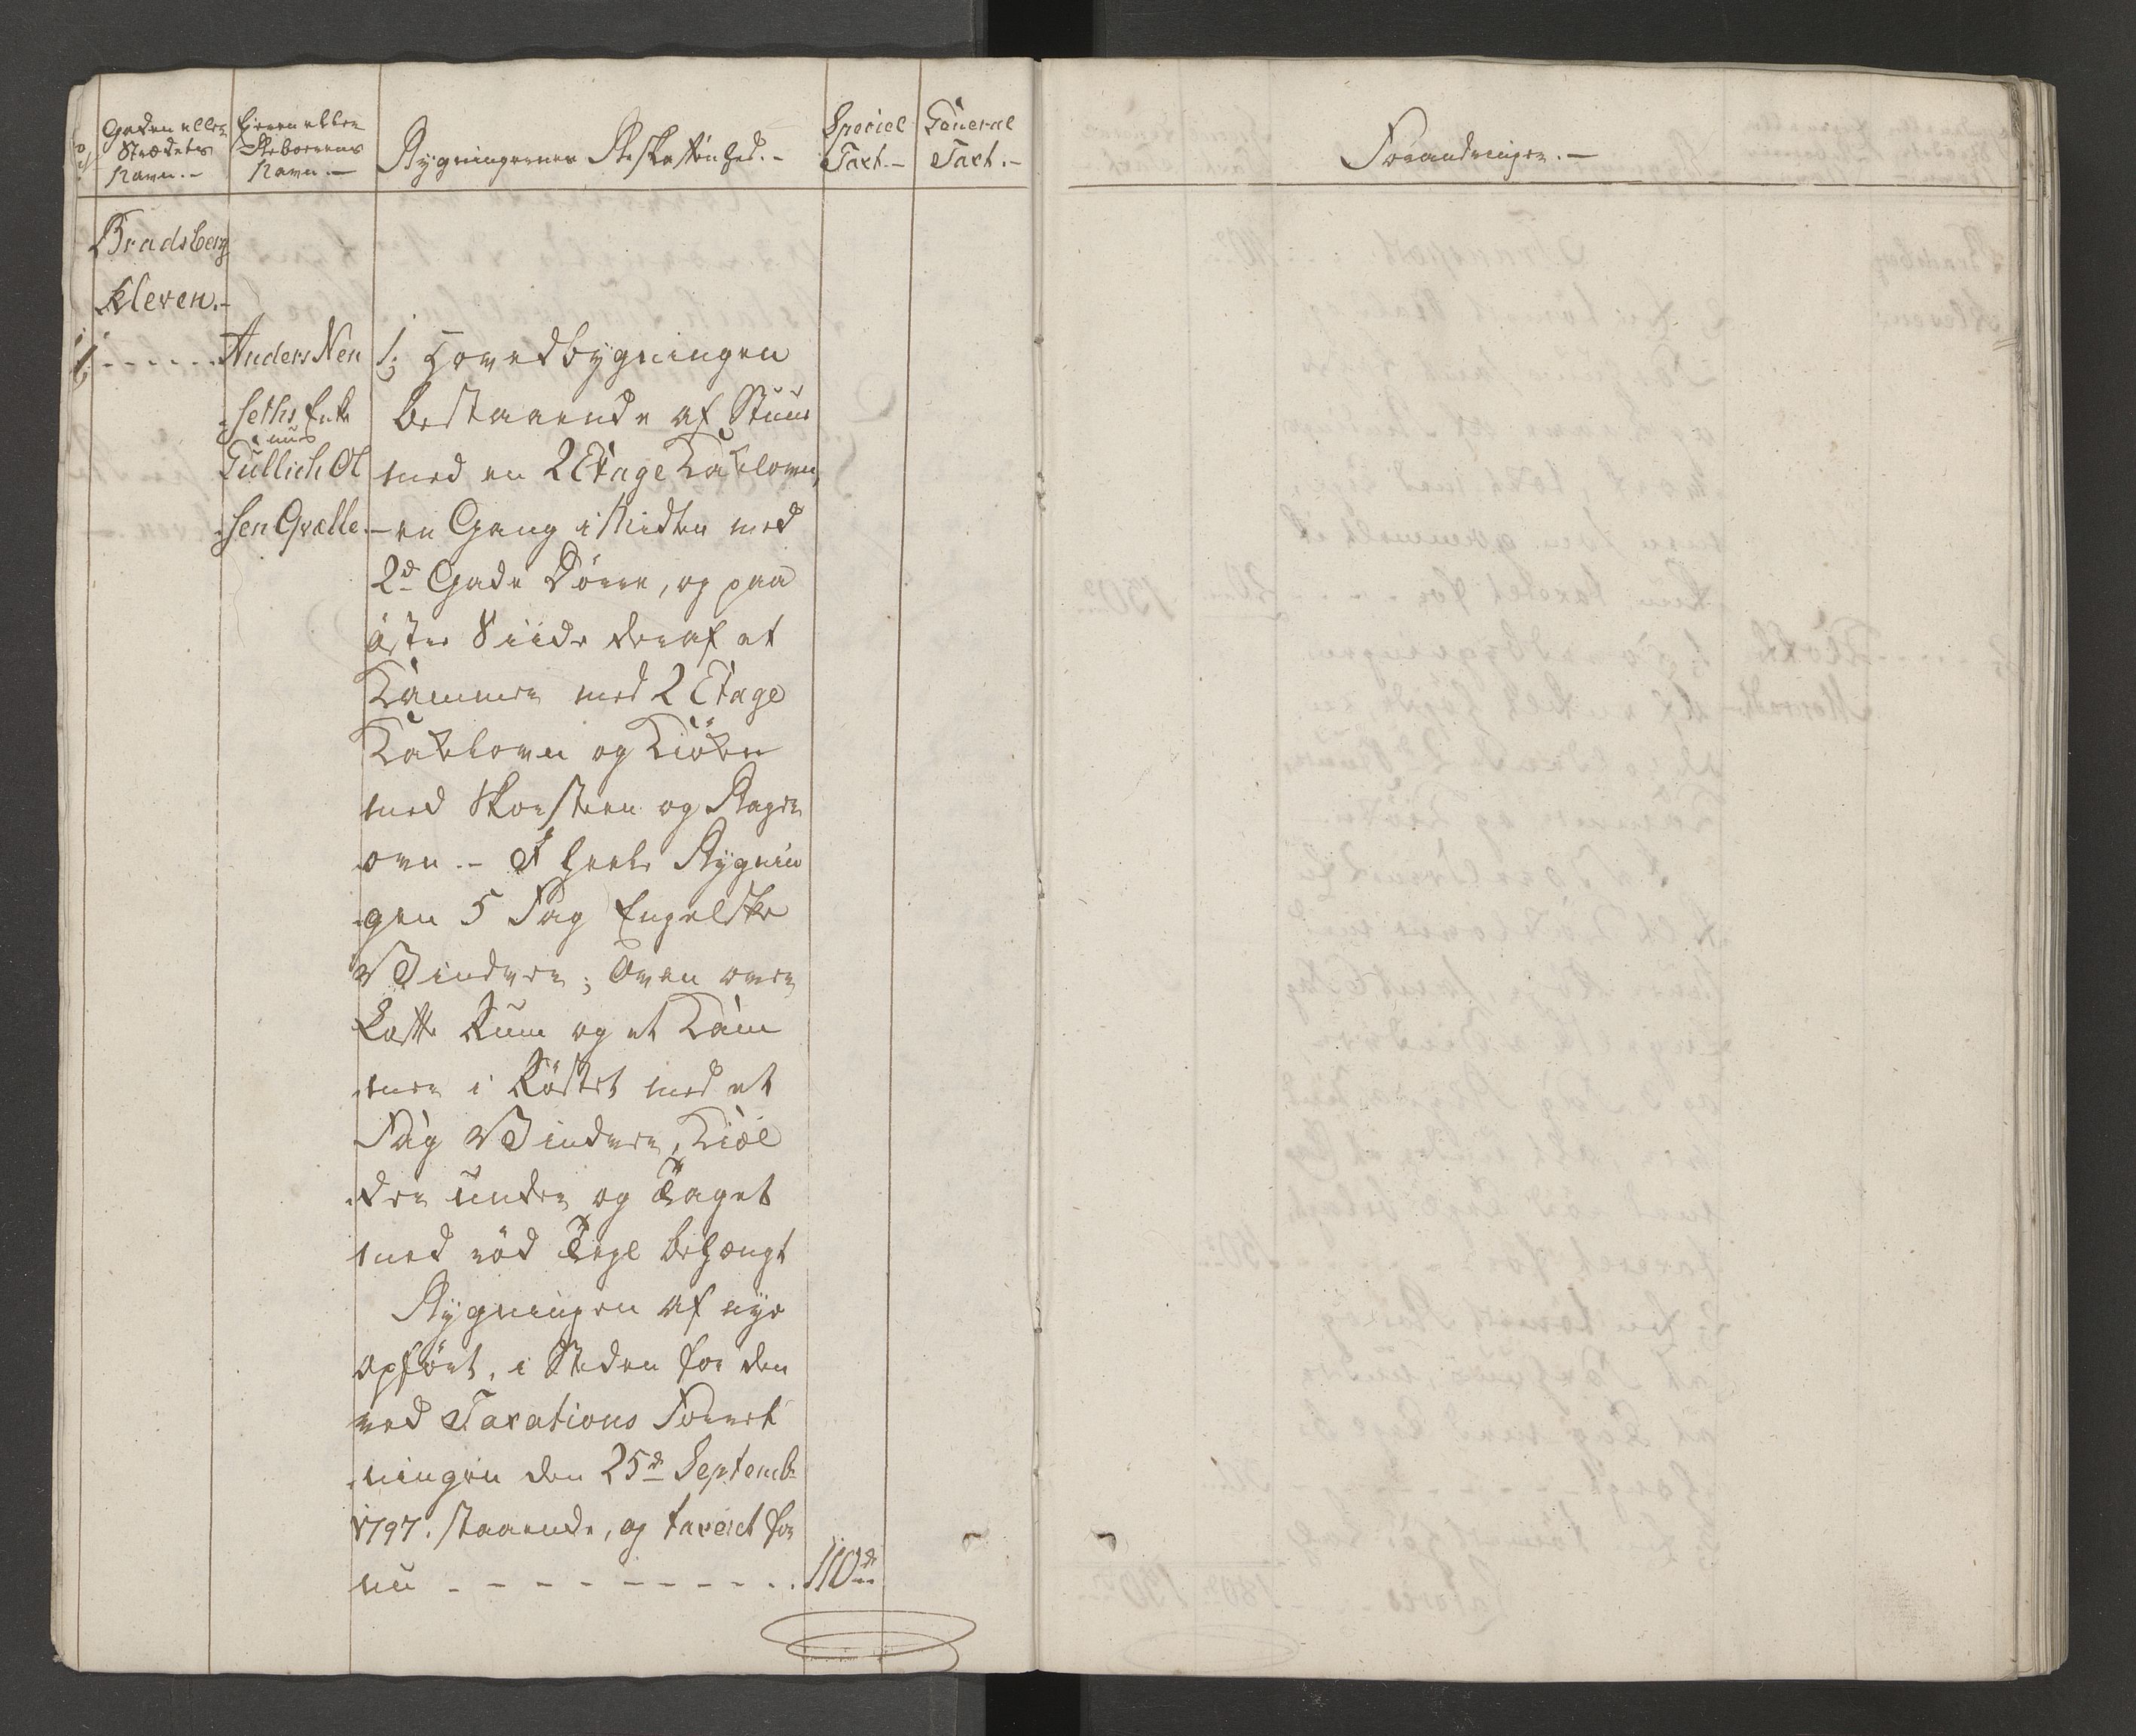 Gaden eller
Strædets
Navn.-
Eieren eller
Beboerens
Navn.-
Bygningernes Beskaffenhed.-
Speciel
Taxt.-
General
Taxt.-
Bradsberg
Kleven.-
1; - - - - - - Anders Nen
-seths Enke
nu
Tullich Ol
-sen Qvælle.-
1; Hovedbygningen
bestaaende af Stuue
med en 2 Etage Kakelovn,
en Gang i Midten med
2de Gade Dörre, og paa
öster Siide deraf et
Kammer med 2 Etage
Kakelovn og Kiöken
med Skorsteen og Bager
ovn.- I heele Bygnin
-gen 5 Fag Engelske
Vinduer; Oven over
Lofte Rum og et Kam
-mer i Röstet med et
Fag Vinduer, Kiæl
-der under og Taget
med röd Tegl behængt
Bygningen af nye
opfört, i Steden for den
ved Taxations Forret
-ningen den 25de Septembr
1797. staaende, og taxeret for
nu - - - - - - - - - - - 110rd
Forandringer.-